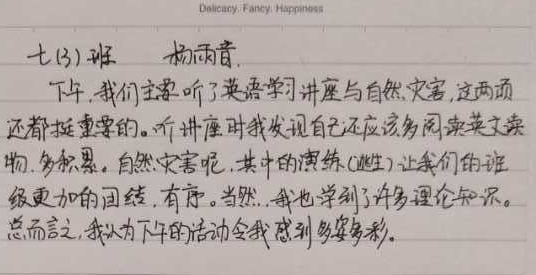 Delicacy. Fancy. Happiness
七(3)班 杨雨音.
下午,我们主要听了英语学习讲座与自然灾害,这两项
还都挺重要的。听讲座时我发现自己还应该多阅读英文读
物,多积累。自然灾害呢,其中的演练(逃生)让我们的班
级更加的团结,有序。当然,我也学到了许多理论知识。
总而言之,我认为下午的活动令我感到多姿多彩。